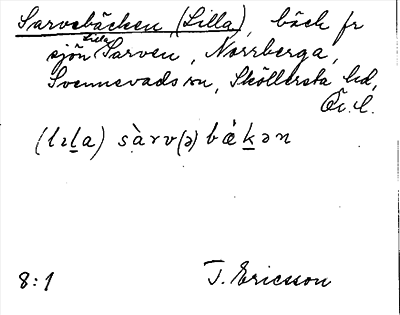 Sarvebäcken (Lilla), bäck fr
sjön Lilla Sarven, Norrberga,
Svennevads sn, Sköllersta hd,
Ör. l.
(lɪla) sàrv(ə)bæ̀kən
8:1 T. Ericsson